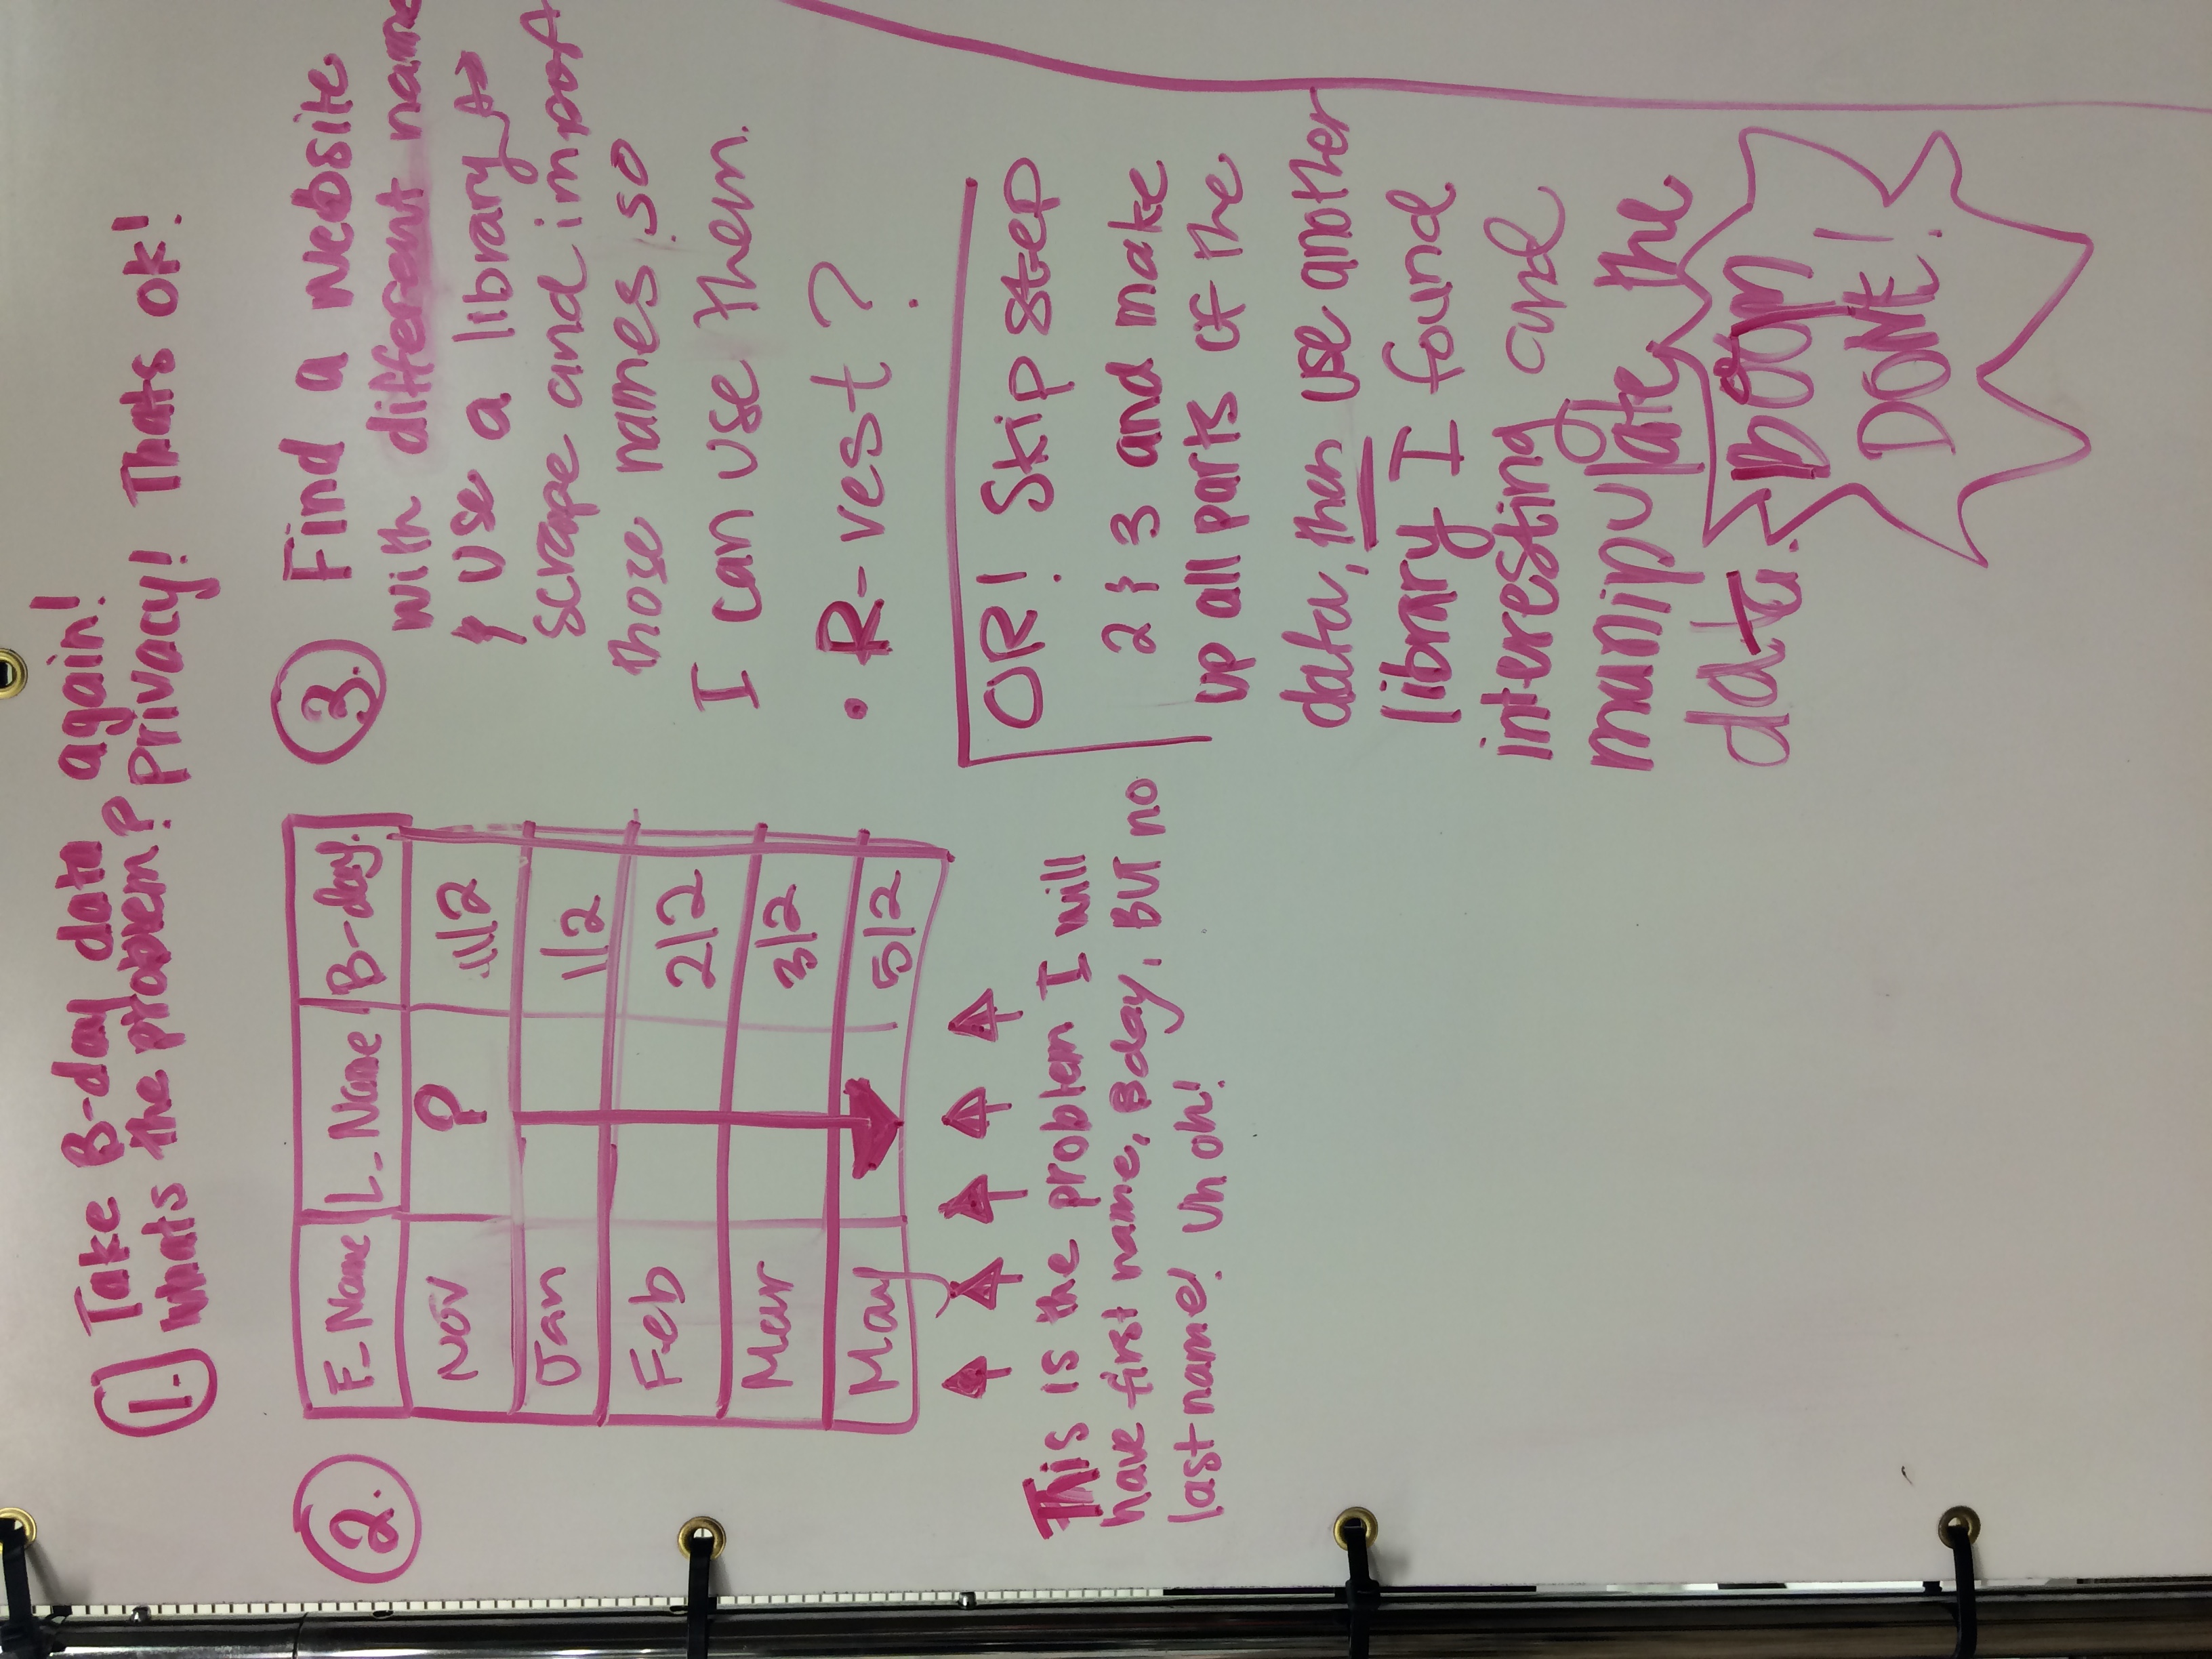 1. Take B-day data again!
whats the problem? Privacy! Thats ok!
2.
F_Name L_Name B-day.
Nov ? 11/2
Jan 1/2
Feb 2/2
Mar 3/2
May 5/2
This is the problem I will
have first name, Bday, BUT no
last name! Uh oh!
3. Find a website
with different name
& use a library to
scrape and import
those names so
I can use them.
• R-vest?
OR! Skip step
2 & 3 and make
up all parts of the
data, then use another
library I found
interesting and
manipulate the
data.
BOOM
DONE!